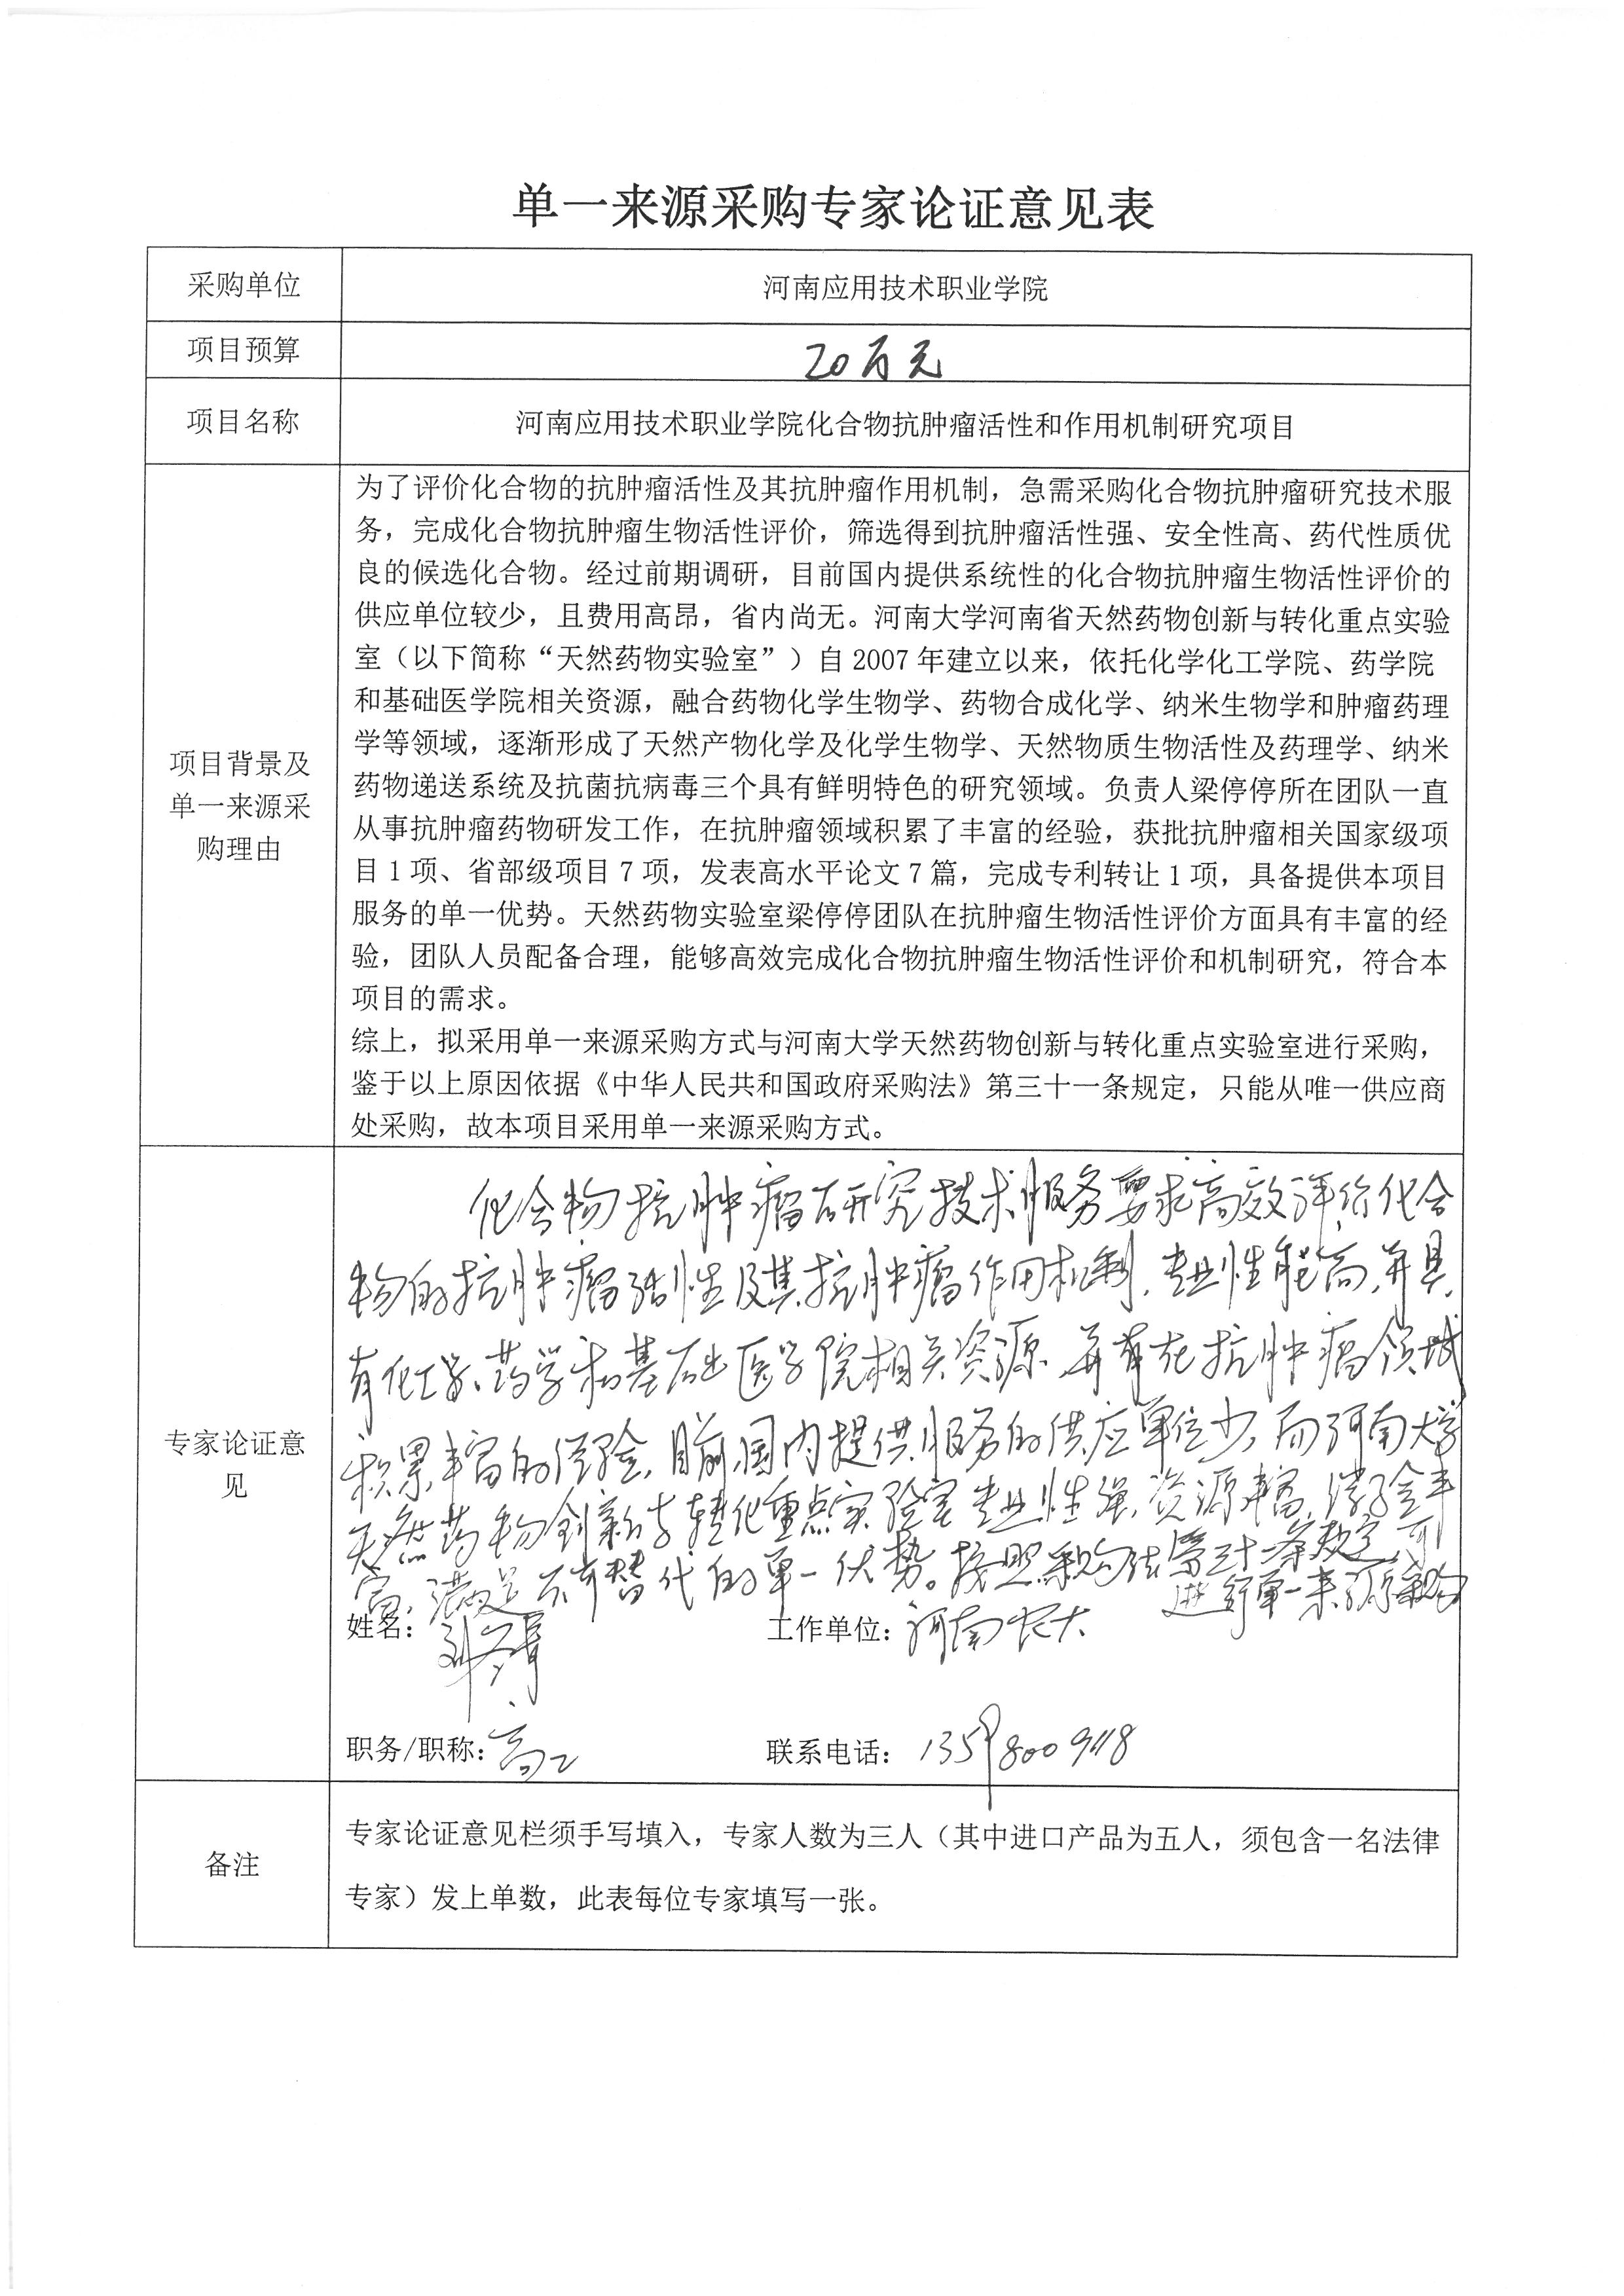 单一来源采购专家论证意见表
采购单位
河南应用技术职业学院
项目预算
20万元
项目名称
河南应用技术职业学院化合物抗肿瘤活性和作用机制研究项目
项目背景及
单一来源采
购理由
为了评价化合物的抗肿瘤活性及其抗肿瘤作用机制，急需采购化合物抗肿瘤研究技术服
务，完成化合物抗肿瘤生物活性评价，筛选得到抗肿瘤活性强、安全性高、药代性质优
良的候选化合物。经过前期调研，目前国内提供系统性的化合物抗肿瘤生物活性评价的
供应单位较少，且费用高昂，省内尚无。河南大学河南省天然药物创新与转化重点实验
室（以下简称“天然药物实验室”）自2007年建立以来，依托化学化工学院、药学院
和基础医学院相关资源，融合药物化学生物学、药物合成化学、纳米生物学和肿瘤药理
学等领域，逐渐形成了天然产物化学及化学生物学、天然物质生物活性及药理学、纳米
药物递送系统及抗菌抗病毒三个具有鲜明特色的研究领域。负责人梁停停所在团队一直
从事抗肿瘤药物研发工作，在抗肿瘤领域积累了丰富的经验，获批抗肿瘤相关国家级项
目1项、省部级项目7项，发表高水平论文7篇，完成专利转让1项，具备提供本项目
服务的单一优势。天然药物实验室梁停停团队在抗肿瘤生物活性评价方面具有丰富的经
验，团队人员配备合理，能够高效完成化合物抗肿瘤生物活性评价和机制研究，符合本
项目的需求。
综上，拟采用单一来源采购方式与河南大学天然药物创新与转化重点实验室进行采购，
鉴于以上原因依据《中华人民共和国政府采购法》第三十一条规定，只能从唯一供应商
处采购，故本项目采用单一来源采购方式。
专家论证意
见
化合物抗肿瘤研究技术服务要求高效评价化合
物的抗肿瘤活性及其抗肿瘤作用机制，专业性能高，并具
有化工学、药学和基础医学院相关资源，并有在抗肿瘤领域
积累丰富的经验，目前国内提供服务的供应单位少，而河南大学
天然药物创新与转化重点实验室专业性强，资源丰富，经验丰
富，满足不可替代的单一优势。按照采购法第三十一条规定，可
进行单一来源采购
姓名：
工作单位：河南农大
职务/职称：高工
联系电话：
备注
专家论证意见栏须手写填入，专家人数为三人（其中进口产品为五人，须包含一名法律
专家）发上单数，此表每位专家填写一张。